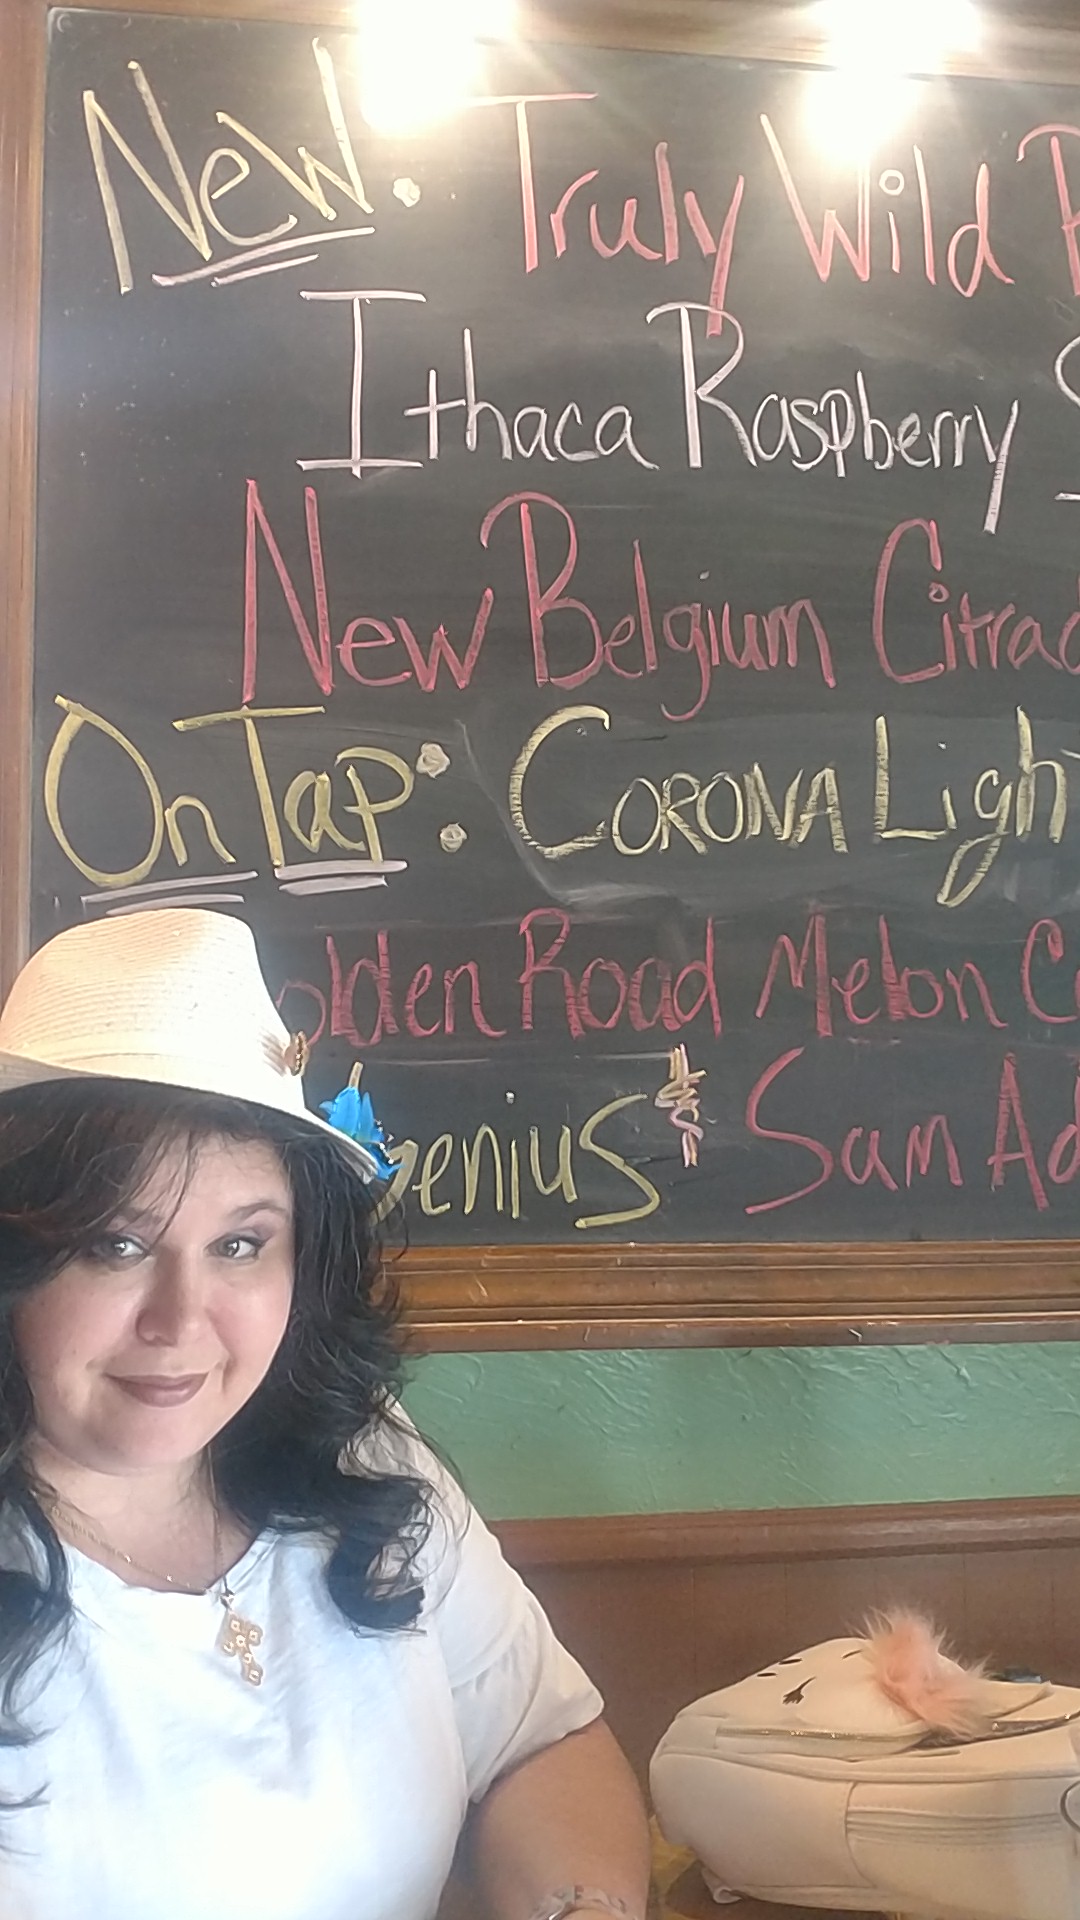 New: Truly Wild
Ithaca Raspberry
New Belgium Citrad
On Tap: Corona Light
olden Road Melon
genius & Sam Ad